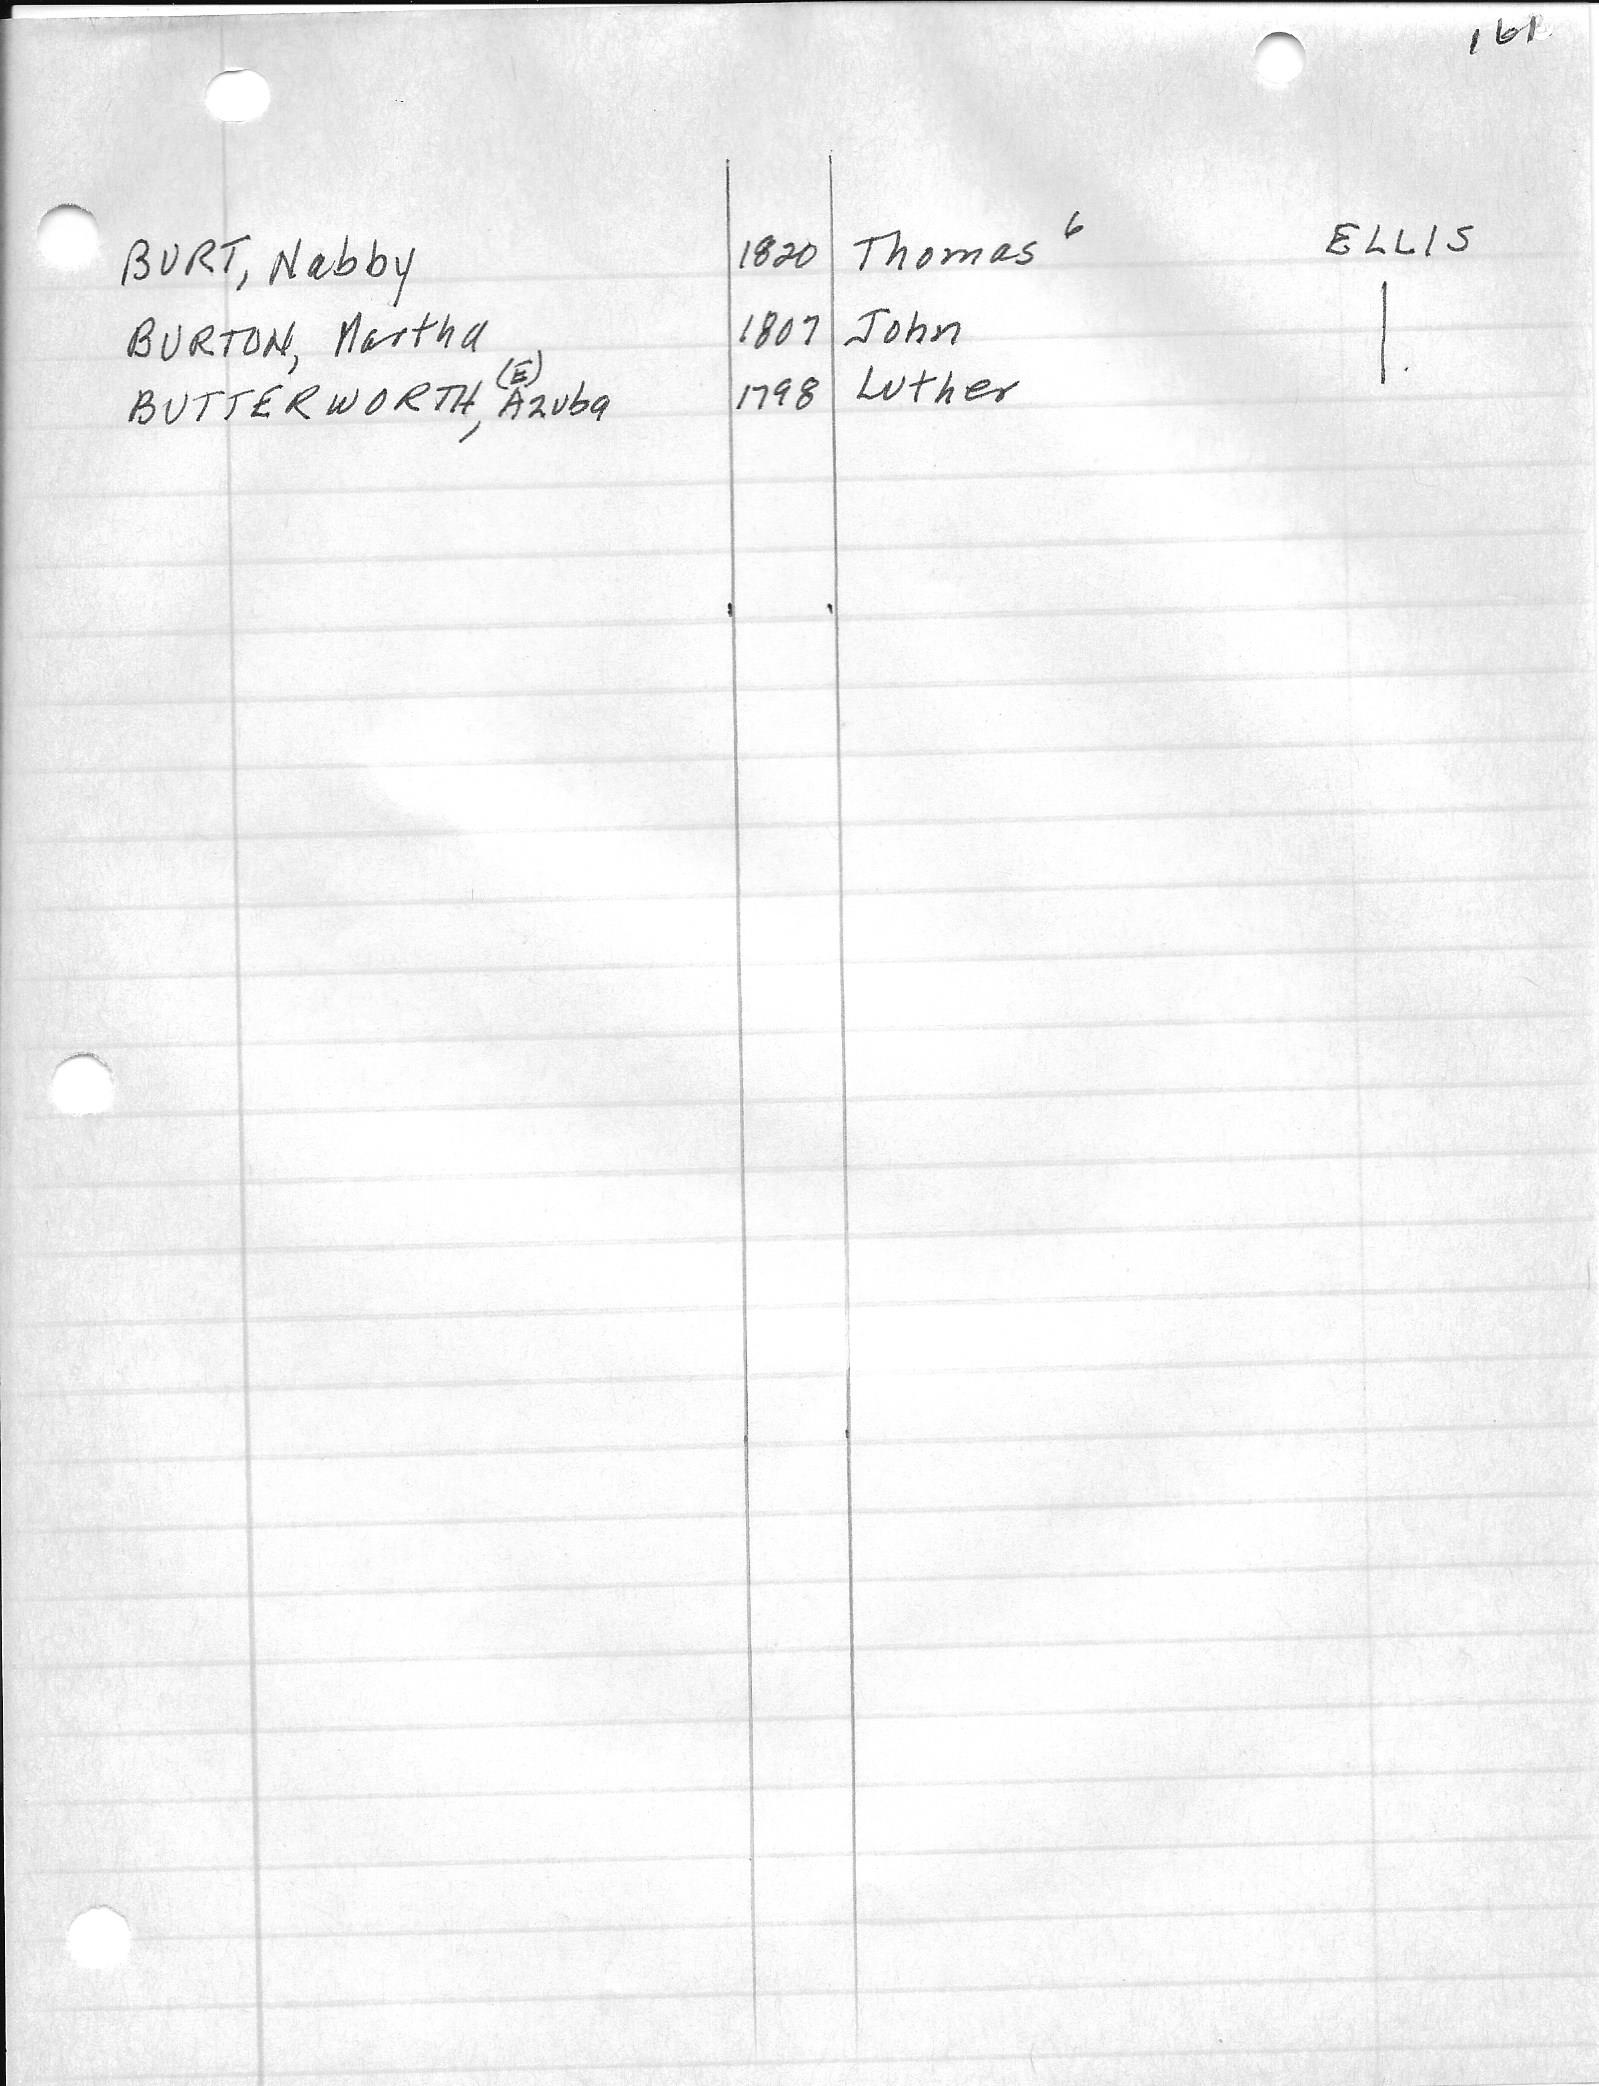 161
BURT, Nabby 1820 Thomas 6 ELLIS
BURTON, Martha 1807 John |
BUTTERWORTH, (E) Azuba 1798 Luther